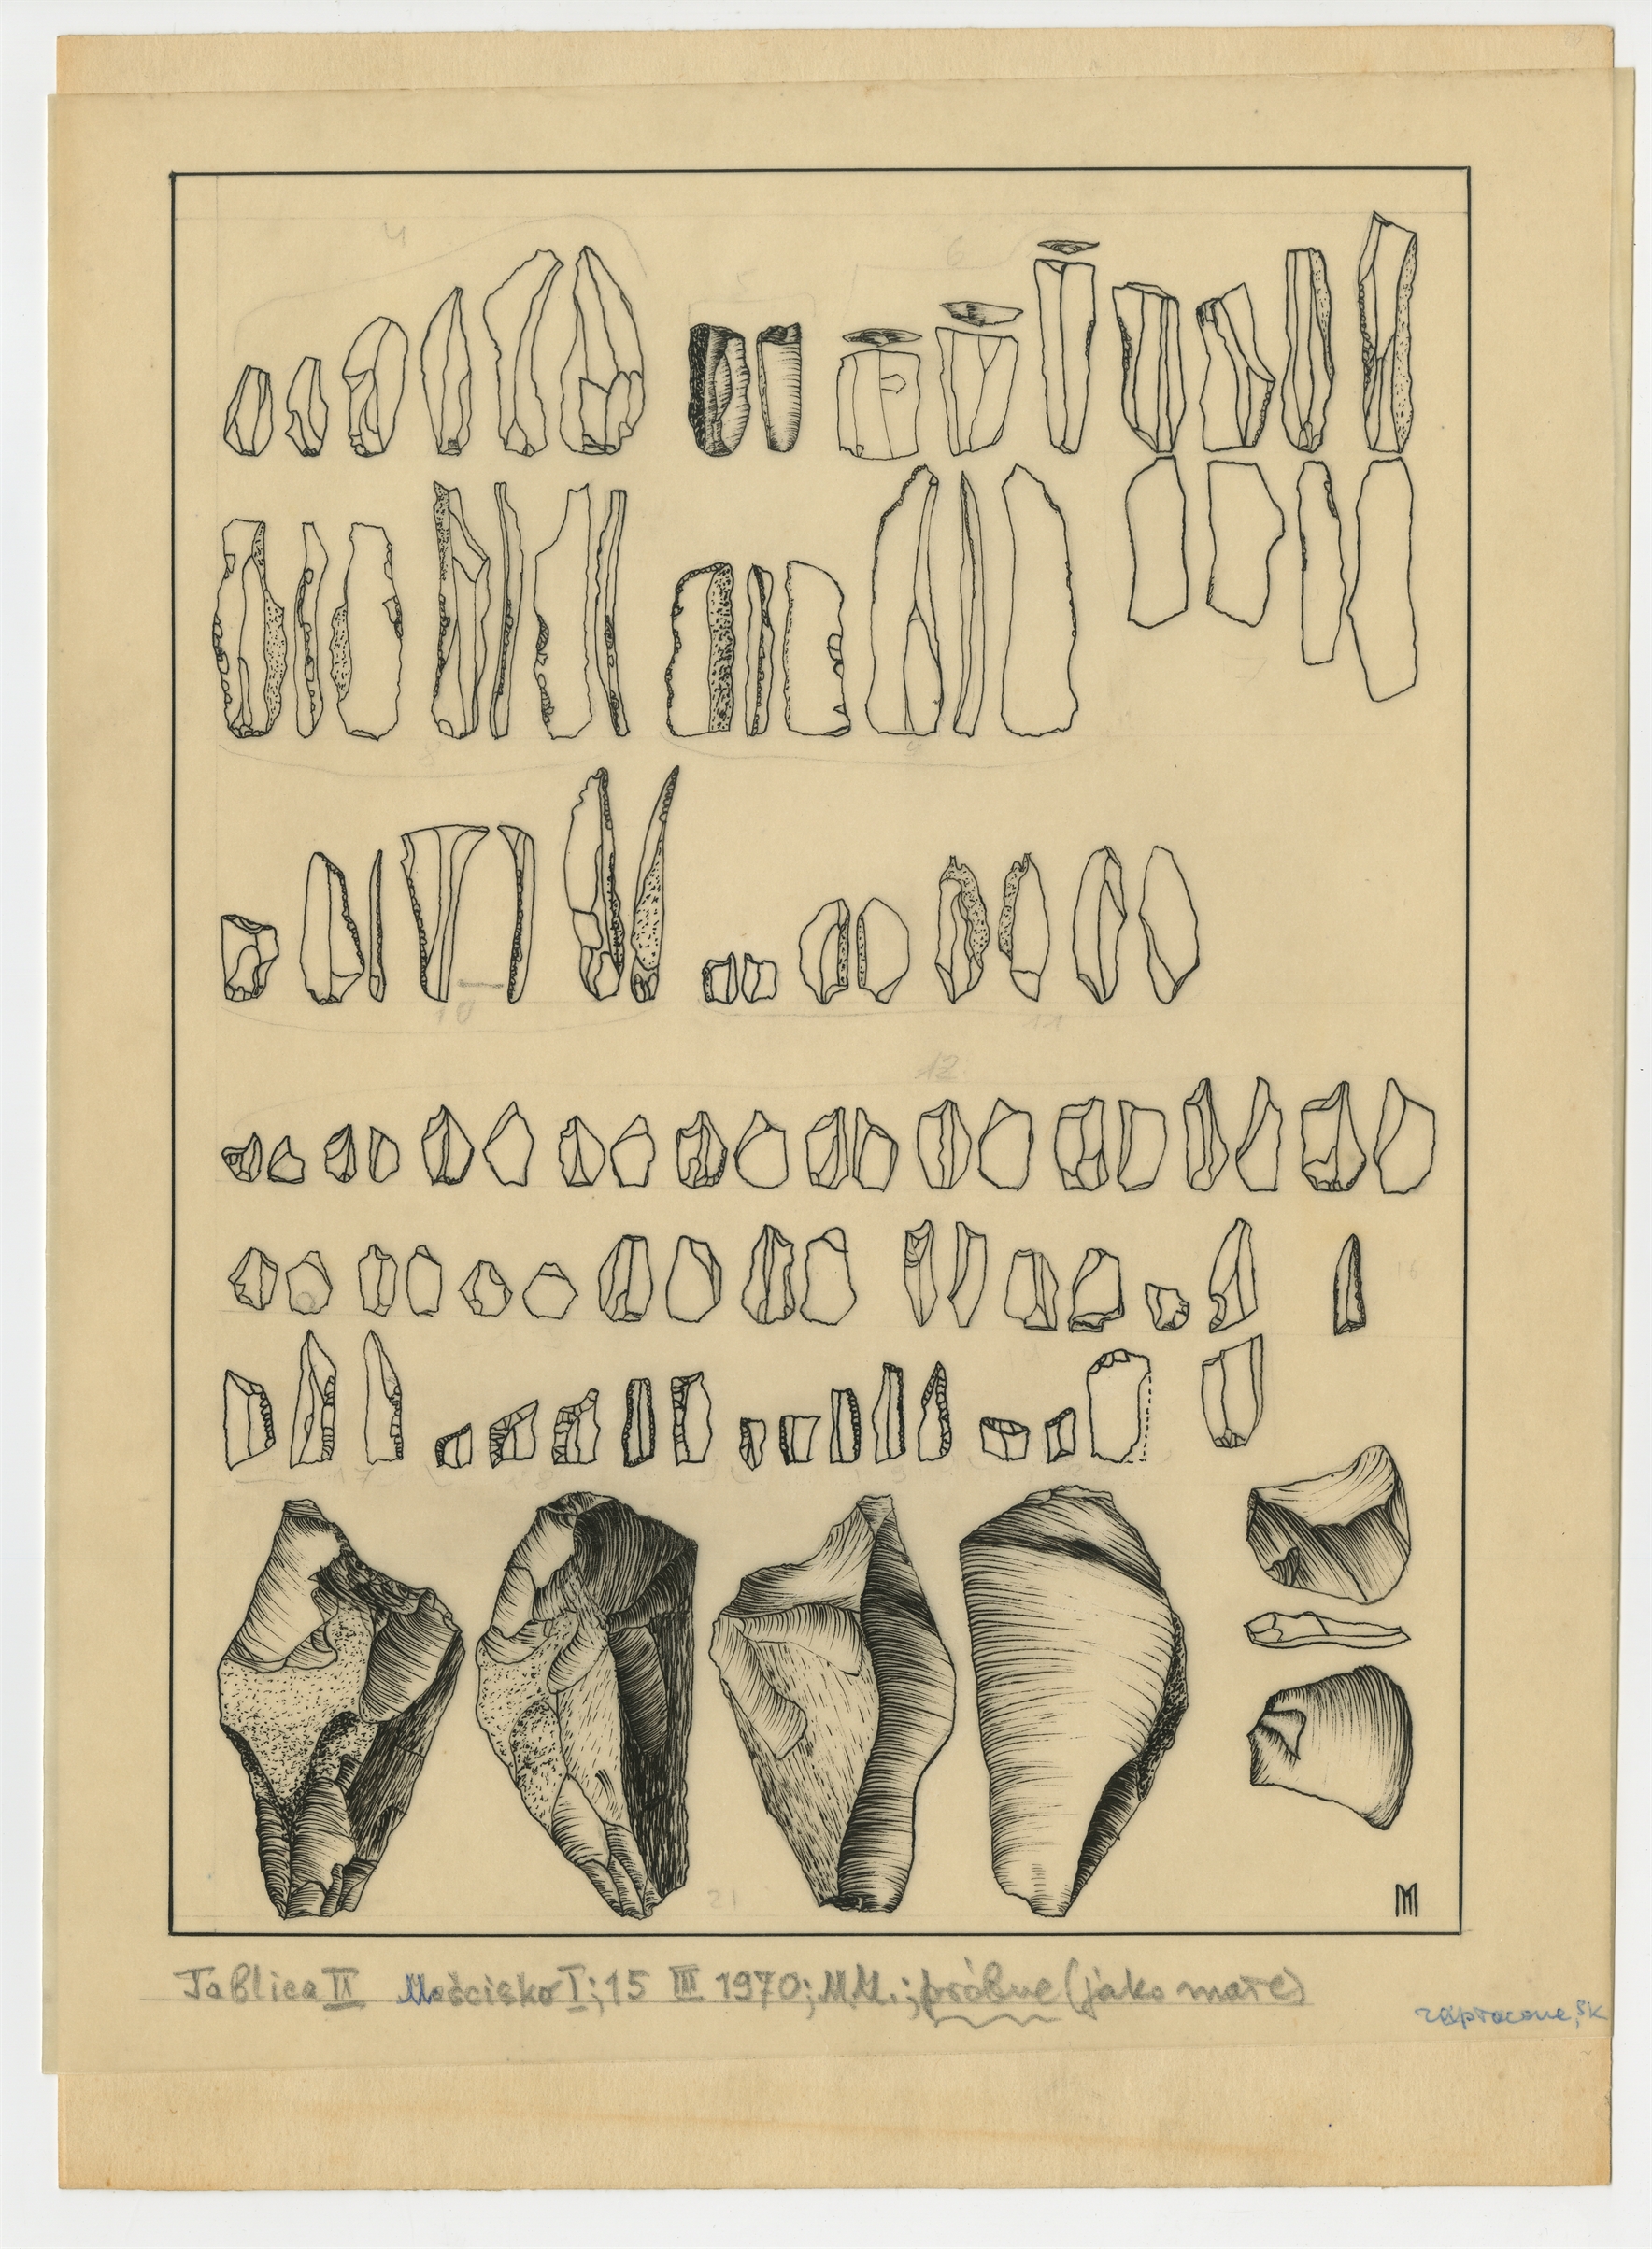 4
5
6
7
8
9
10
11
12
16
17
18
19
21
M
Tablica II Mościsko I; 15 III 1970; M.M.; próbne (jako małe)
SK